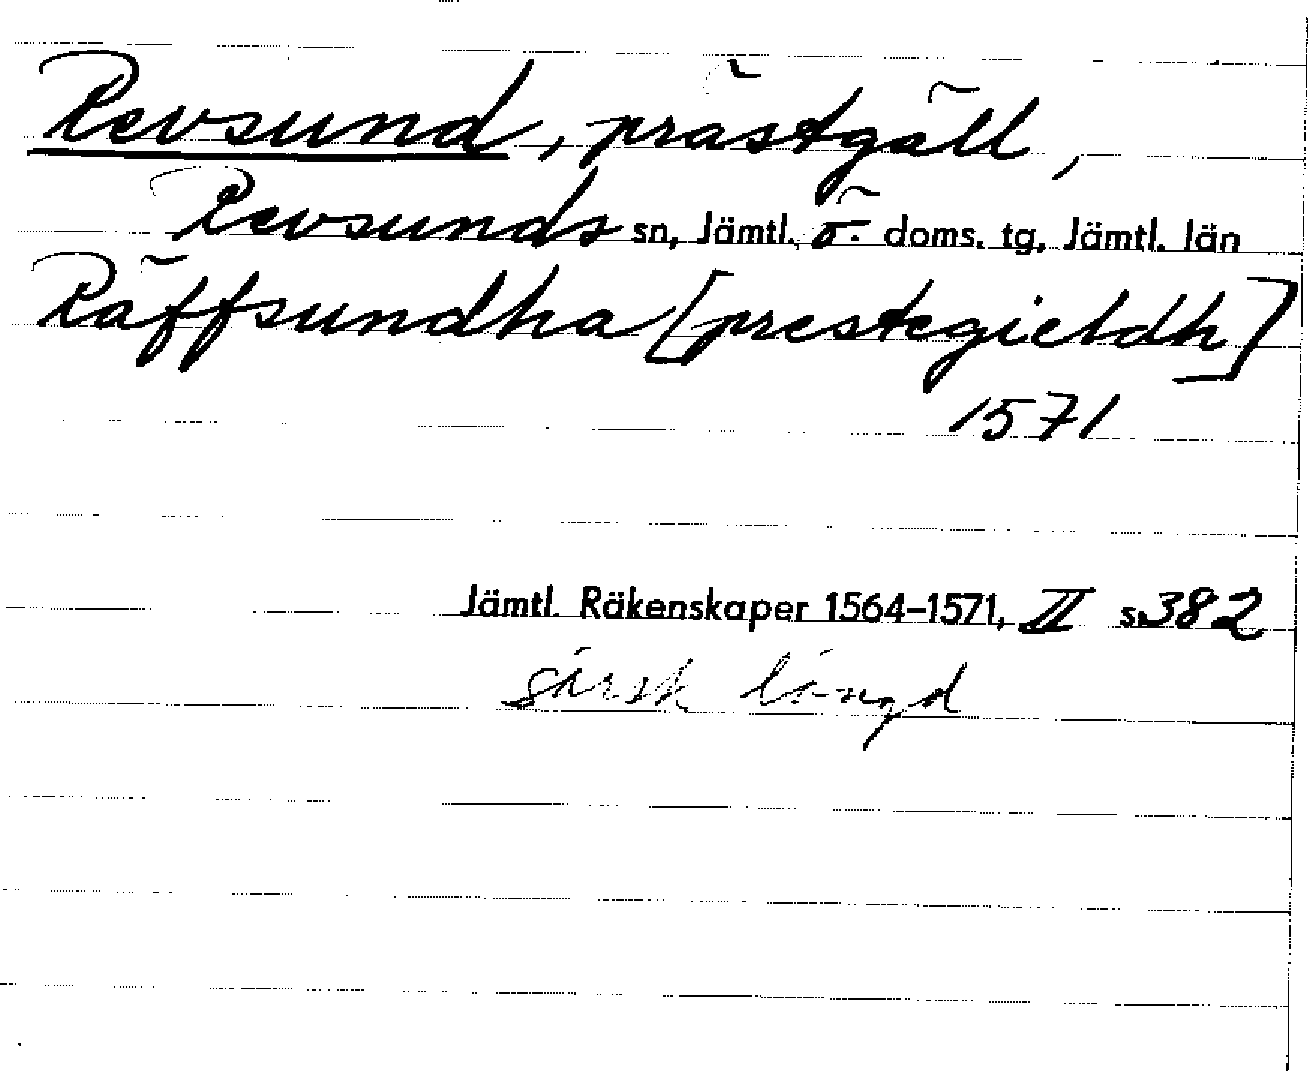 Revsund, prästgäll,
Revsunds sn, Jämtl. ö. doms. tg, Jämtl. län
Räffsundha [prestegieldh]
1571
Jämtl. Räkenskaper 1564–1571, II s. 382
särsk längd